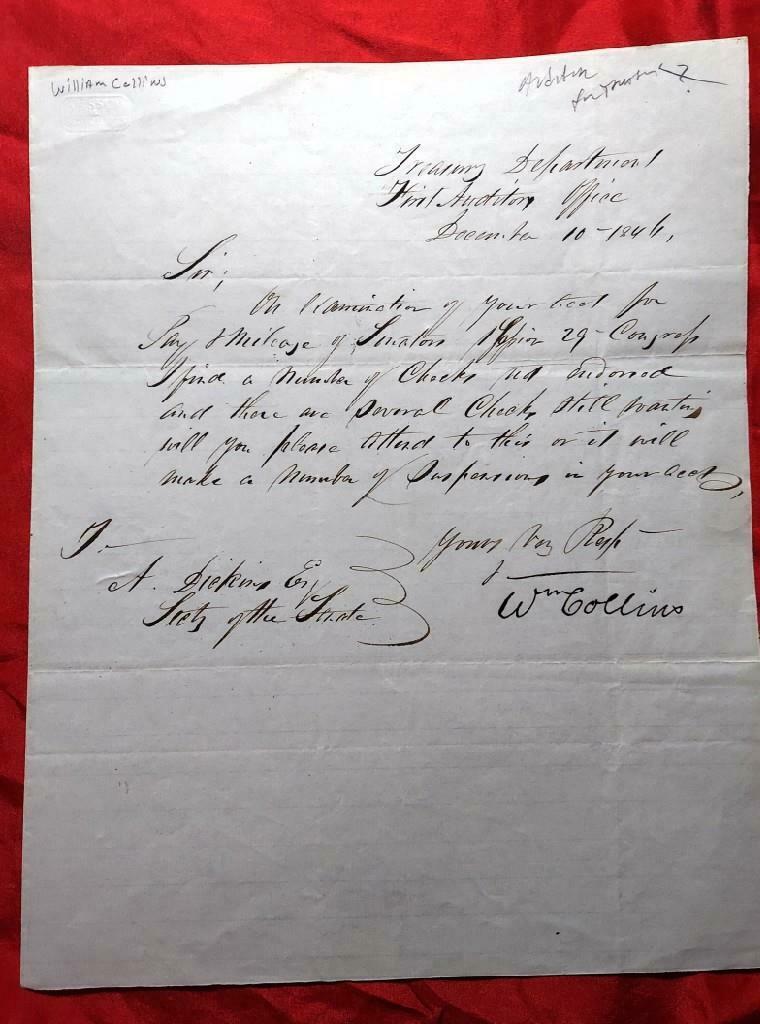 William Collins
Auditor
for Treasury ?
Treasury Department
First Auditors Office
December 10 - 1846,
Sir;
On Examination of your acct for
Pay & Mileage of Senators 1 Session 29 - Congress
I find a Number of Checks not endorsed
and there are Several Checks still wanting
will you please attend to this or it will
make a Number of Suspensions in your acct,
Yours Very Resp
To
A. Dickins Esq
Secty of the Senate
Wm Collins